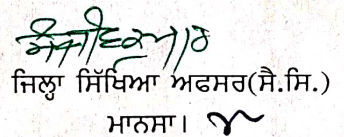 ਜਿਲ੍ਹਾ ਸਿੱਖਿਆ ਅਫਸਰ(ਸੈ.ਸਿ.)
ਮਾਨਸਾ।